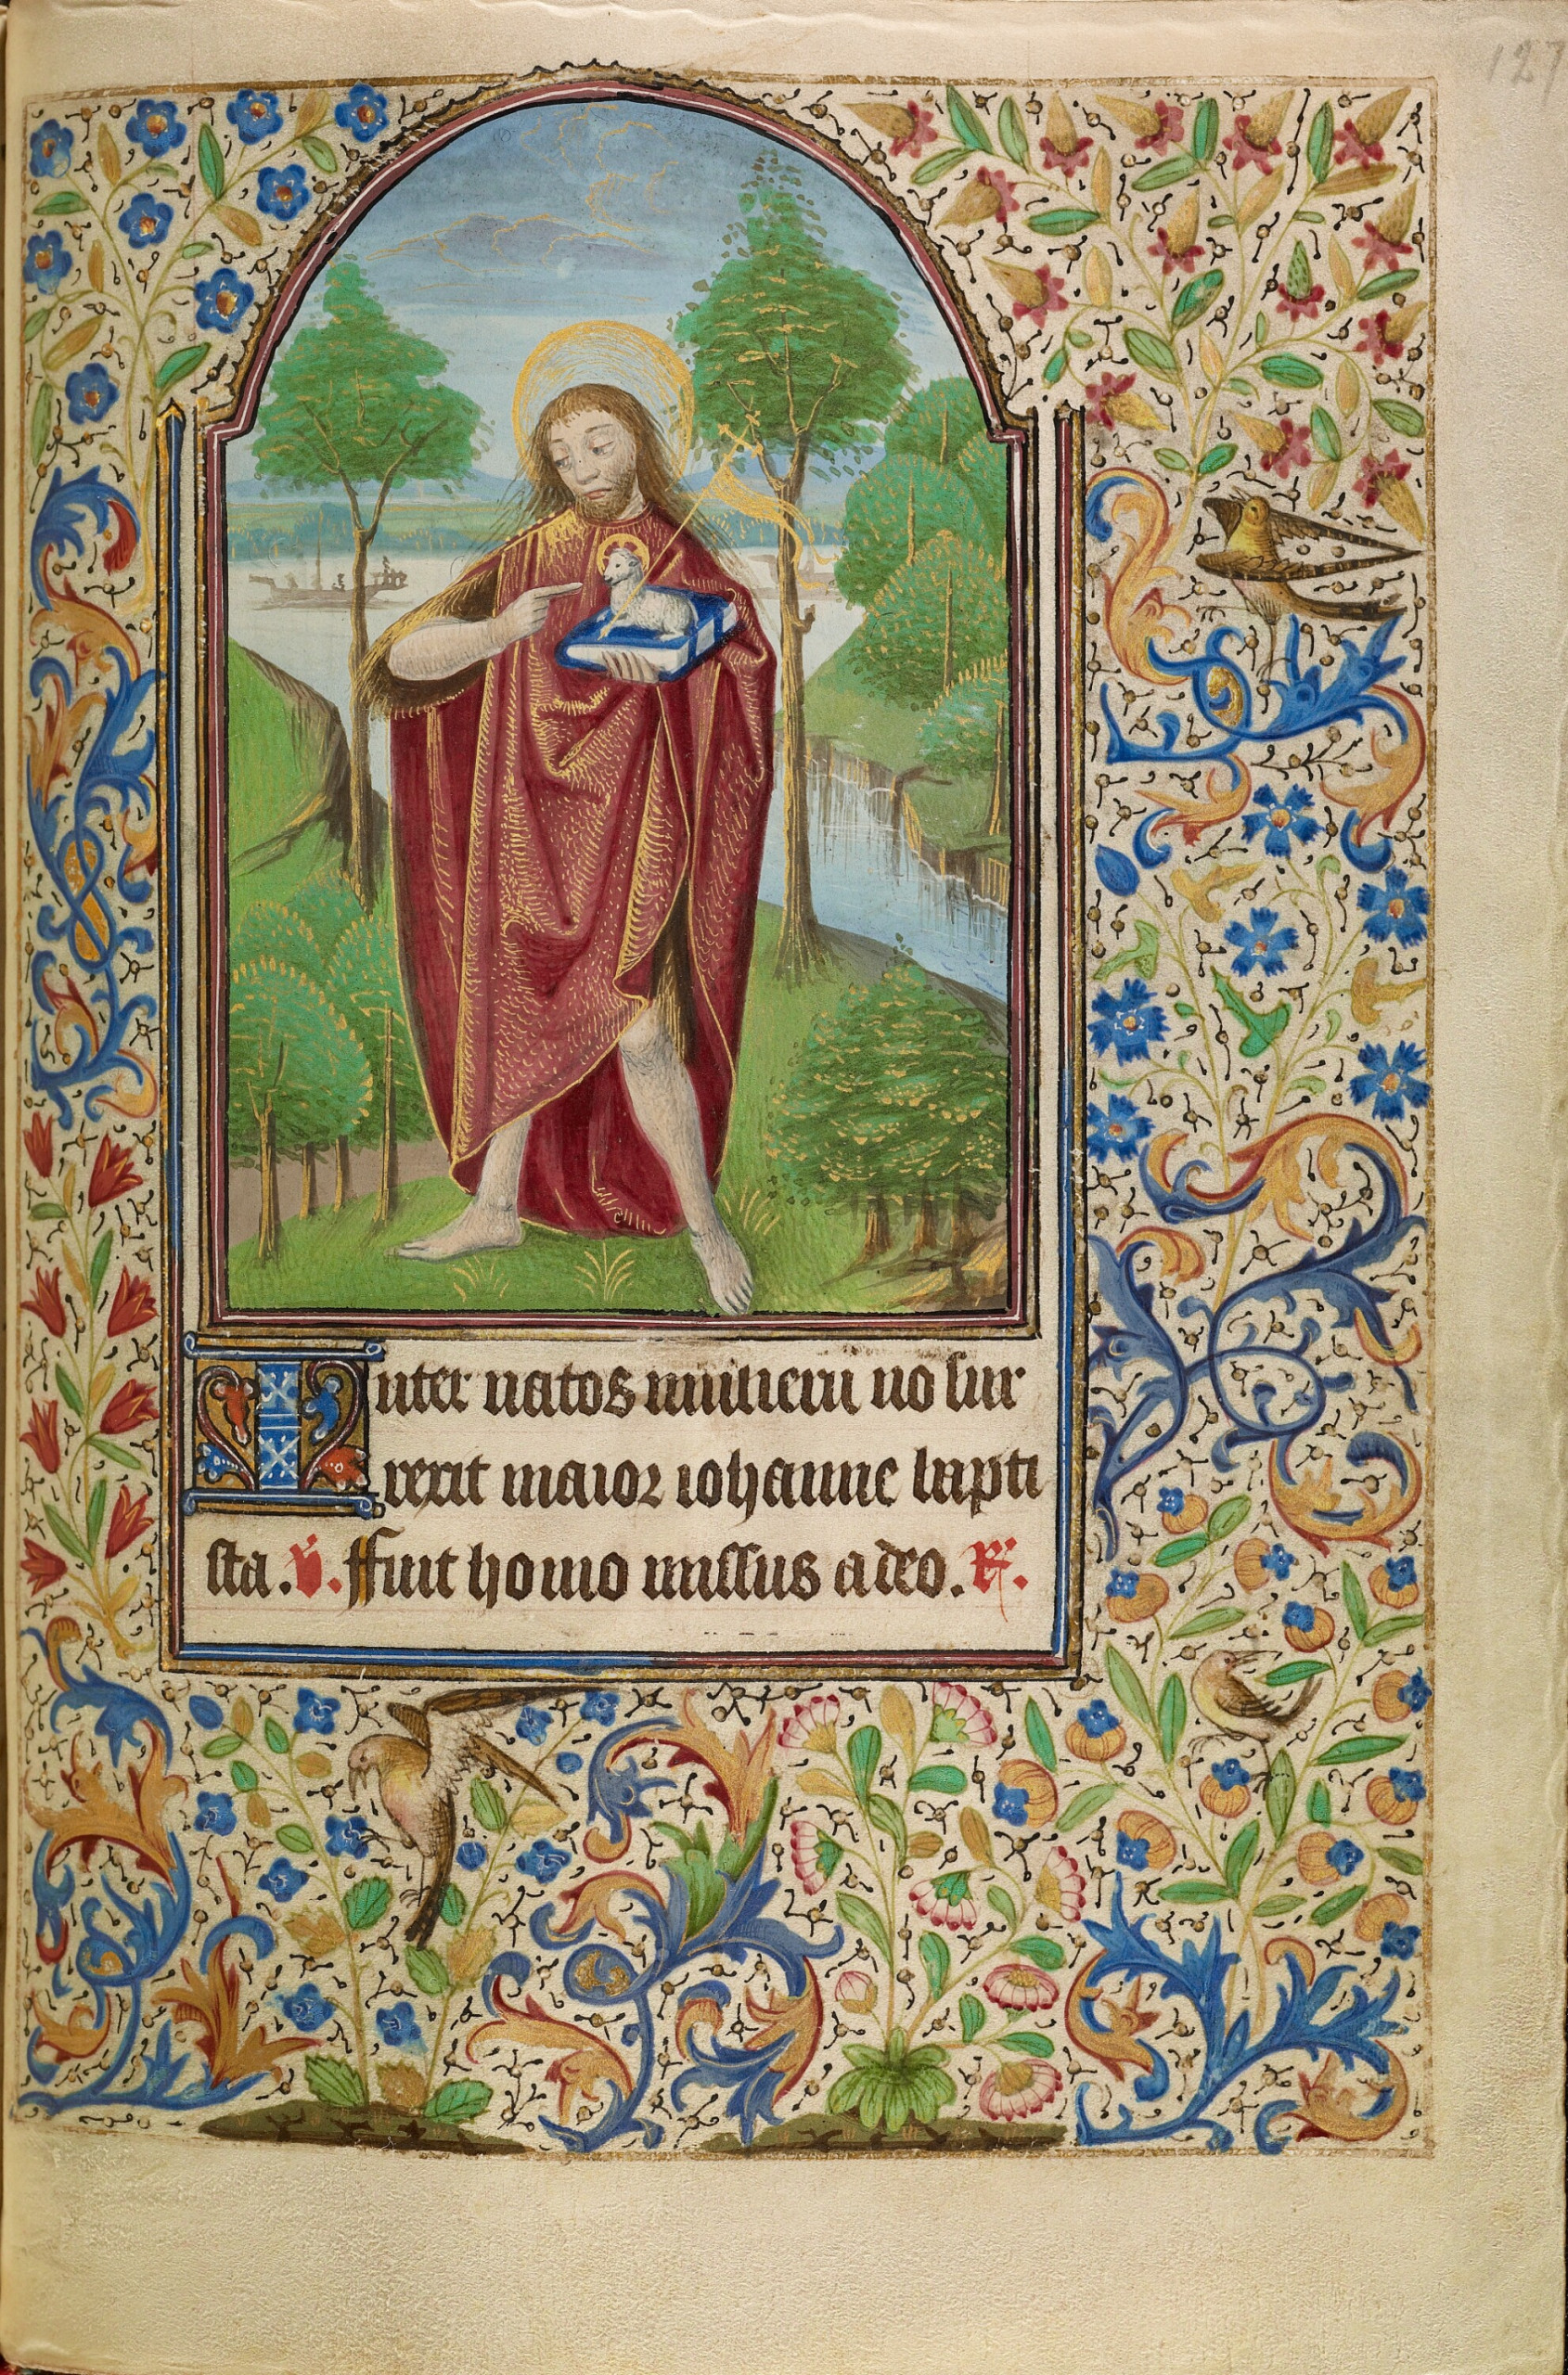 127
Inter natos mulieru no sur
rexit maior iohanne bapti
sta. V. Ffuit homo missus adeo. R.